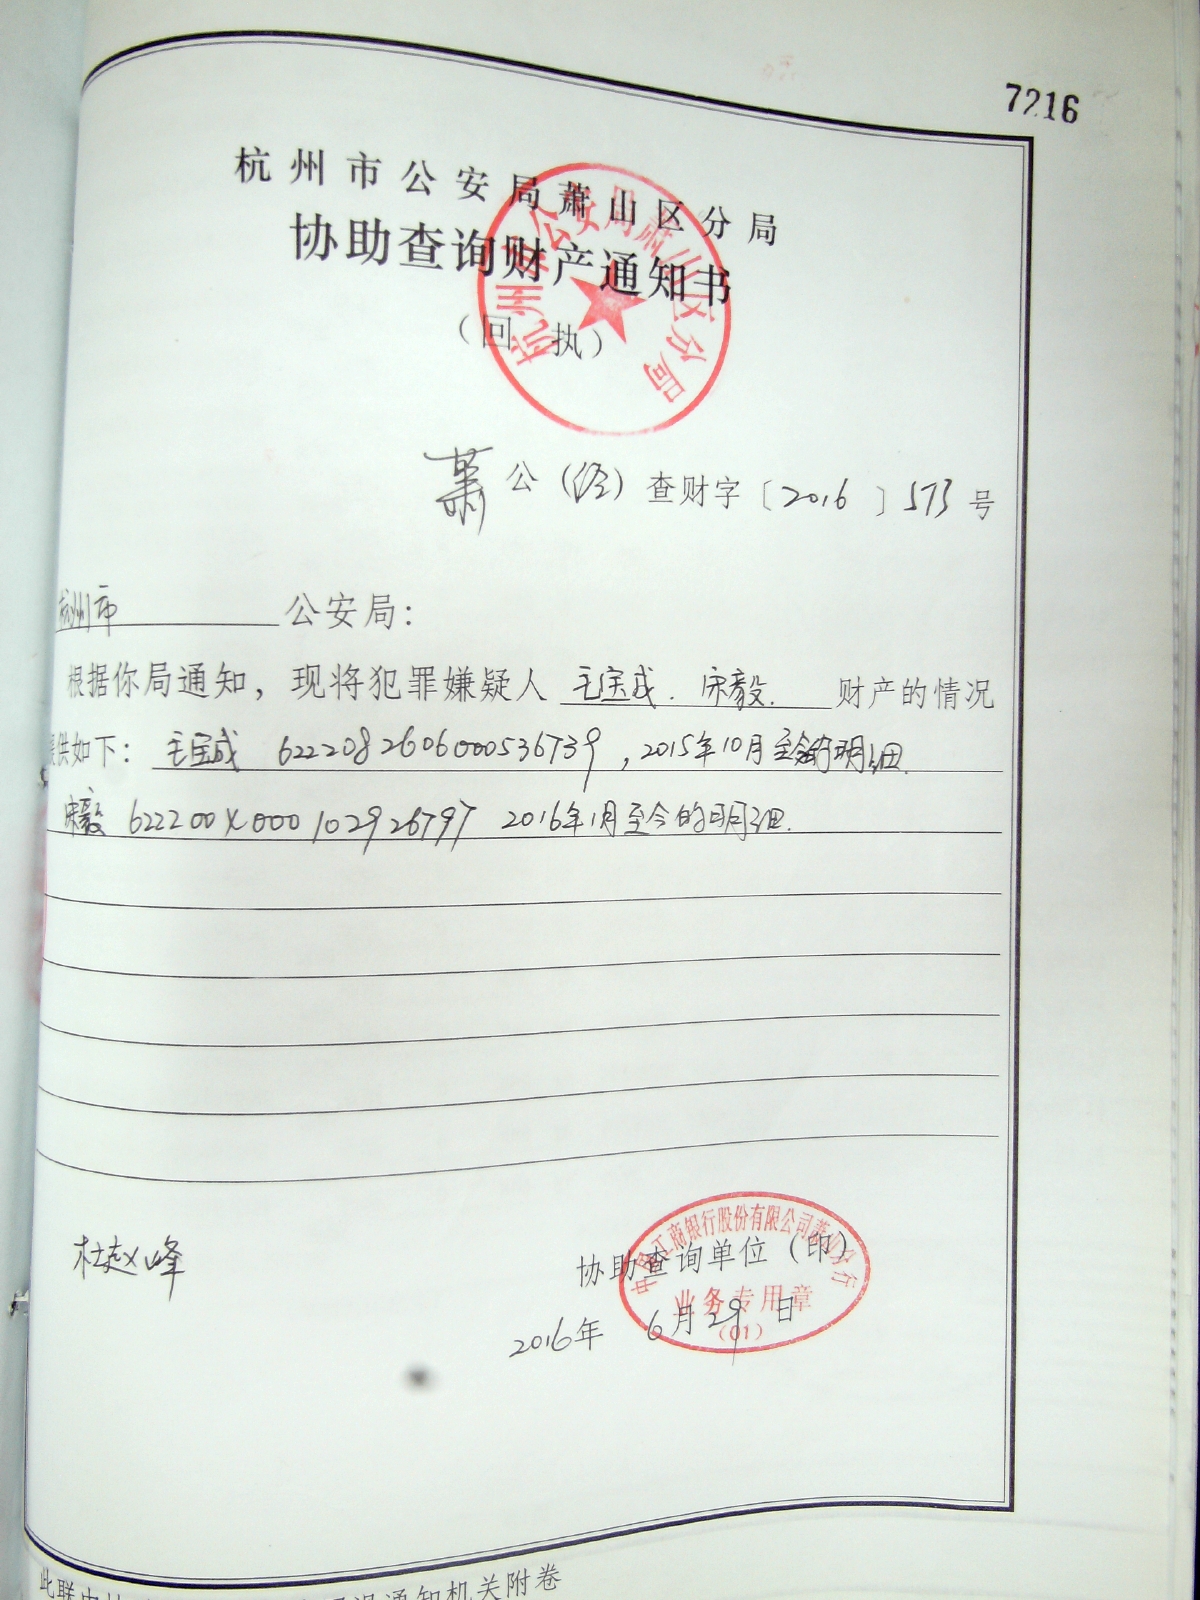 7216
杭州市公安局萧山区分局
协助查询财产通知书
（回 执）
杭州市公安局萧山区分局
萧公（经）查财字〔2016〕573号
杭州市 公安局：
根据你局通知，现将犯罪嫌疑人 毛宝成、宋毅 财产的情况
提供如下：毛宝成 6222082606000536739，2015年10月至今的明细
宋毅 622200X000102926797 2016年1月至今的明细.
杜赵峰
中国工商银行股份有限公司萧山分行
协助查询单位（印）
业务专用章
2016年 6月29日
(01)
通知机关附卷